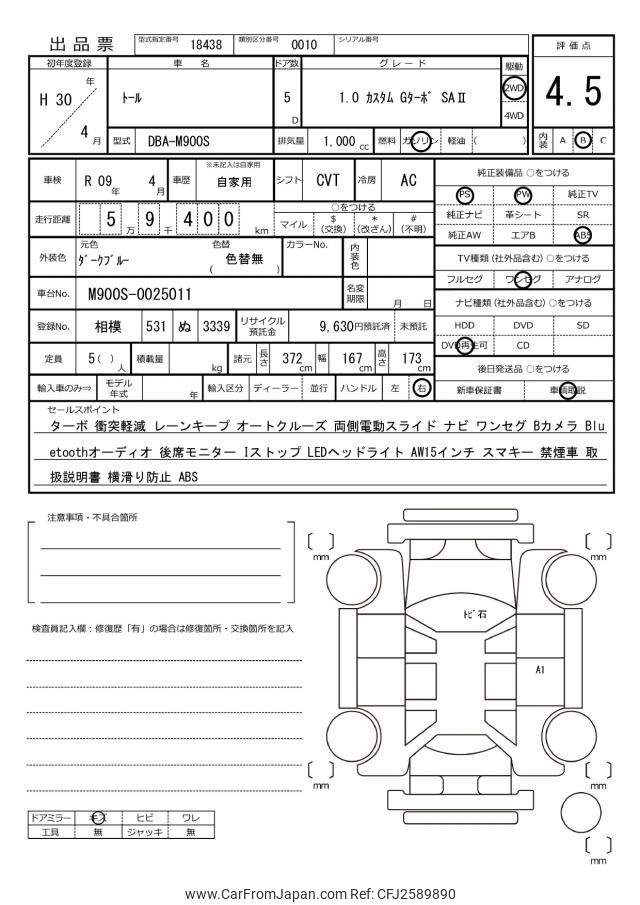 出品票
型式指定番号 18438 類別区分番号 0010 シリアル番号
評価点
4.5
内装 A B C
初年度登録 車名 ドア数 グレード 駆動
H 30 年 4 月
トール 5 D 1.0 カスタム Gターボ SAⅡ 2WD
4WD
型式 DBA-M900S 排気量 1,000 cc 燃料 ガソリン 軽油 ( )
車検 R 09 年 4 月 車歴 ※未記入は自家用 自家用 シフト CVT 冷房 AC
走行距離 5 万 9 千 4 0 0 km
○をつける
マイル $(交換) *(改ざん) #(不明)
外装色 元色 ダークブルー 色替 ( 色替無 ) カラーNo. 内装色
車台No. M900S-0025011 名変期限 月 日
登録No. 相模 531 ぬ 3339 リサイクル預託金 9,630円預託済 未預託
定員 5( ) 人 積載量 kg 諸元 長さ 372 cm 幅 167 cm 高さ 173 cm
輸入車のみ⇒ モデル年式 年 輸入区分 ディーラー 並行 ハンドル 左 右
純正装備品 ○をつける
PS PW 純正TV
純正ナビ 革シート SR
純正AW エアB ABS
TV種類 (社外品含む) ○をつける
フルセグ ワンセグ アナログ
ナビ種類 (社外品含む) ○をつける
HDD DVD SD
DVD再生可 CD
後日発送品 ○をつける
新車保証書 車輌取説
セールスポイント
ターボ 衝突軽減 レーンキープ オートクルーズ 両側電動スライド ナビ ワンセグ Bカメラ Blu
etoothオーディオ 後席モニター Iストップ LEDヘッドライト AW15インチ スマキー 禁煙車 取
扱説明書 横滑り防止 ABS
注意事項・不具合箇所
検査員記入欄：修復歴「有」の場合は修復箇所・交換箇所を記入
mm
mm
トビ石
A1
mm
mm
mm
ドアミラー キズ ヒビ ワレ
工具 無 ジャッキ 無
www.CarFromJapan.com Ref: CFJ2589890